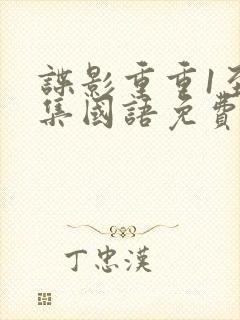 諜影重重1至
集國語免費
丁忠漢